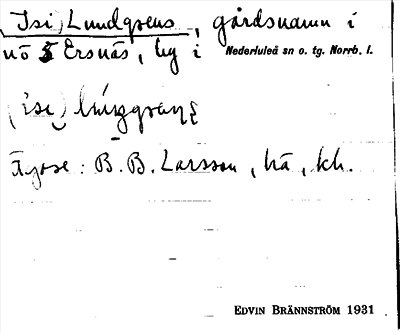 (Isi) Lundgrens, gårdsnamn i
nö Ersnäs, by i Nederluleå sn o. tg. Norrb. l.
B. B. Larsson, hä, kh.
EDVIN BRÄNNSTRÖM 1931